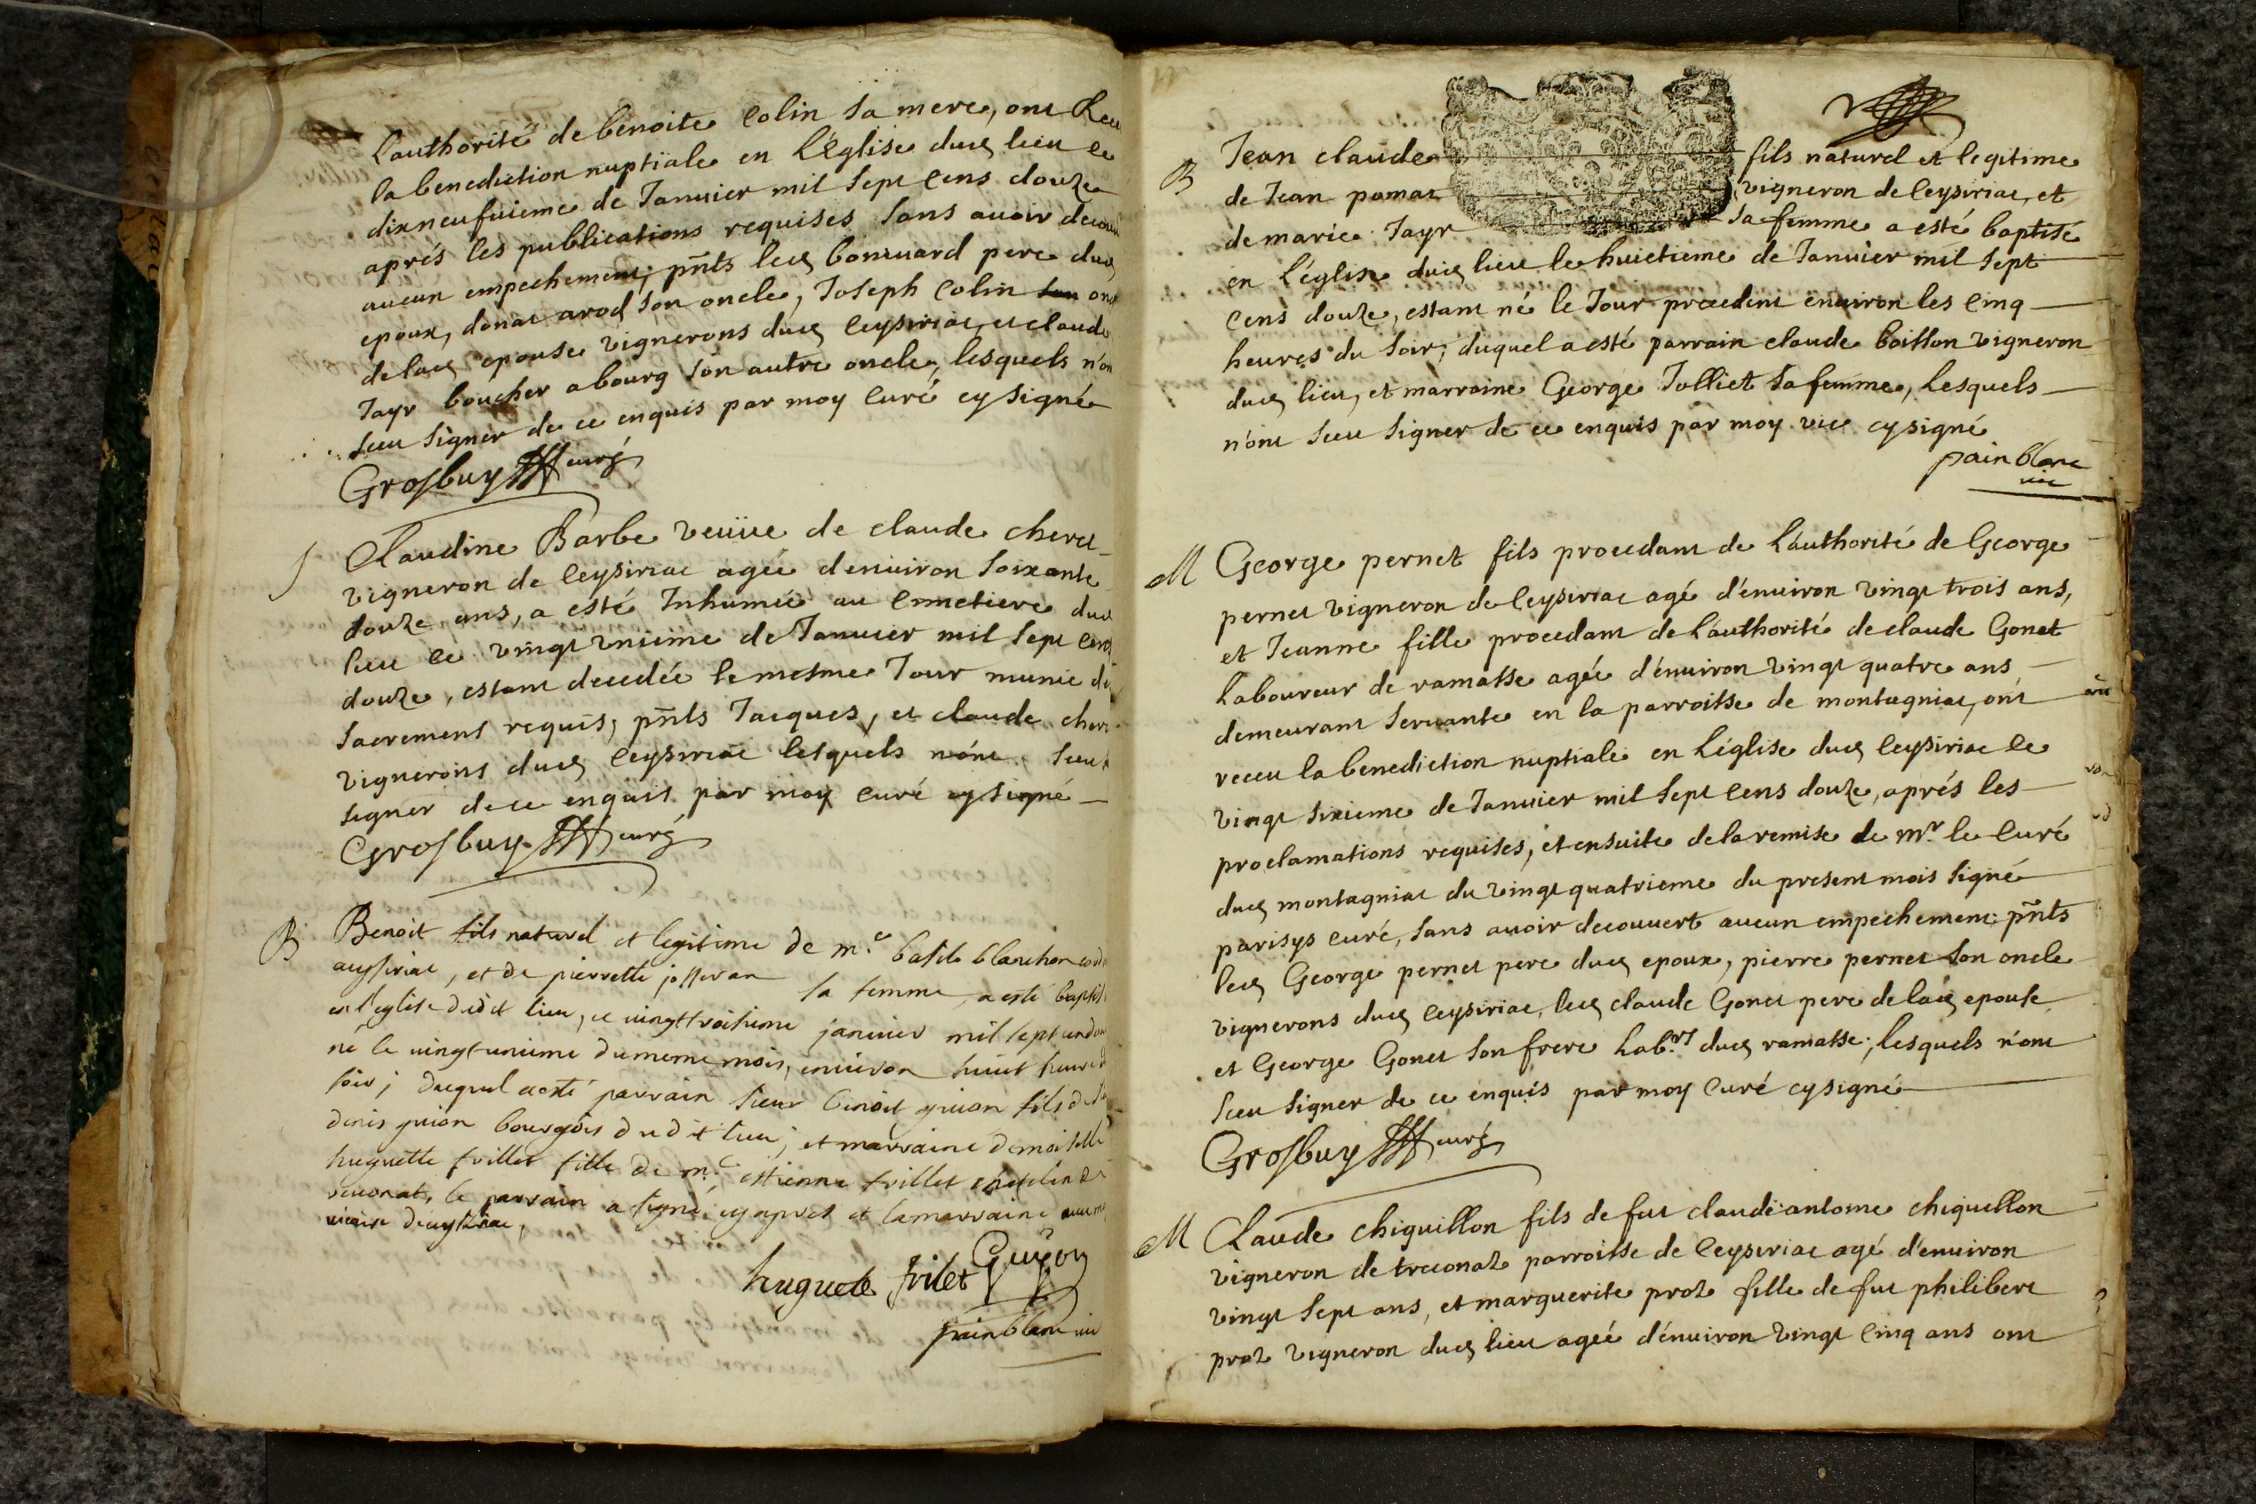 L'authorité de benoite Colin sa mere, ont Receu
la benediction nuptiale en L'église dud lieu le
dixneufuieme de Januier mil sept cens douze
aprés les publications requises sans auoir decouu
aucun empechement; pñts led bonuuard pere dud
epoux, donat arod son oncle, Joseph Colin on
delad epouse vignerons dud Ceysiriat, et claude
Jayr boucher a bourg son autre oncle, lesquels n'on
sceu signer de ce enquis par moy Curé cy signé
Grosbuy curé
S
Claudine Barbe veuüe de claude cheret
vigneron de Ceysiriat agée d'enuiron soixante
douze ans, a esté Inhumée au Cimetiere dud
lieu ce vingt vnieme de Januier mil sept cens
douze, estant decedée le mesme Jour munie de
sacremens requis; pñts Jacques, et claude cher
vignerons dud Ceysiriat lesquels n'ont sceu
signer de ce enquis par moy Curé cy signé
Grosbuy curé
B
Benoit fils naturel et legitime de m.e basile blanchon
aceysiriat, et de pierrette josseran sa femme, a esté baptis
en l'eglise dudit lieu, ce vingttroisieme janvier mil sept
né le vingtunieme du meme mois, enuiron huit heures d
soir; duquel a esté parrain sieur Benoit guion fils de
denis guion bourgois dudit lieu; et marraine demoiselle
huguette frillet fille de m.e estienne frillet chatelin de
le parrain a signé cy apres et la marraine
vicaire de ceysiriat,
huguete frilet Guyon
painblanc vic
B
Jean claude fils naturel et legitime
de Jean pomat vigneron de Ceysiriat, et
de marie Jayr sa femme a esté baptisé
en L'église dud lieu le huictieme de Januier mil sept
cens douze, estant né le Jour precedent enuiron les cinq
heures du soir; duquel a esté parrain claude boisson vigneron
dud lieu, et marraine George Jolliet sa femme, Lesquels
n'ont sceu signer de ce enquis par moy vice cy signé
pain blanc
vic
M
George pernet fils procedant de L'authorité de George
pernet vigneron de Ceysiriat agé d'enuiron vingt trois ans,
et Jeanne fille procedant de L'authorité de claude Gonet
Laboureur de ramasse agée d'enuiron vingt quatre ans
demeurant seruante en la parroisse de montagniat, ont
receu la benediction nuptiale en L'église dud Ceysiriat le
vingt sixieme de Januier mil sept cens douze, aprés les
proclamations requises, et ensuite de la remise de m.r le Curé
dud montagniat du vingt quatrieme du present mois signé
parisys curé, sans auoir decouuert aucun empechement: pñts
led George pernet pere dud epoux, pierre pernet son oncle
vignerons dud Ceysiriat, led claude Gonet pere de lad epouse,
et George Gonet son frere Lab.rs dud ramasse; lesquels n'ont
sceu signer de ce enquis par moy Curé cy signé
Grosbuy curé
M
Claude chiquillon fils de fut claude antoine chiquillon
vigneron de treconaz parroisse de Ceysiriat agé d'enuiron
vingt sept ans, et marguerite proz fille de fut philibert
proz vigneron dud lieu agée d'enuiron vingt cinq ans ont